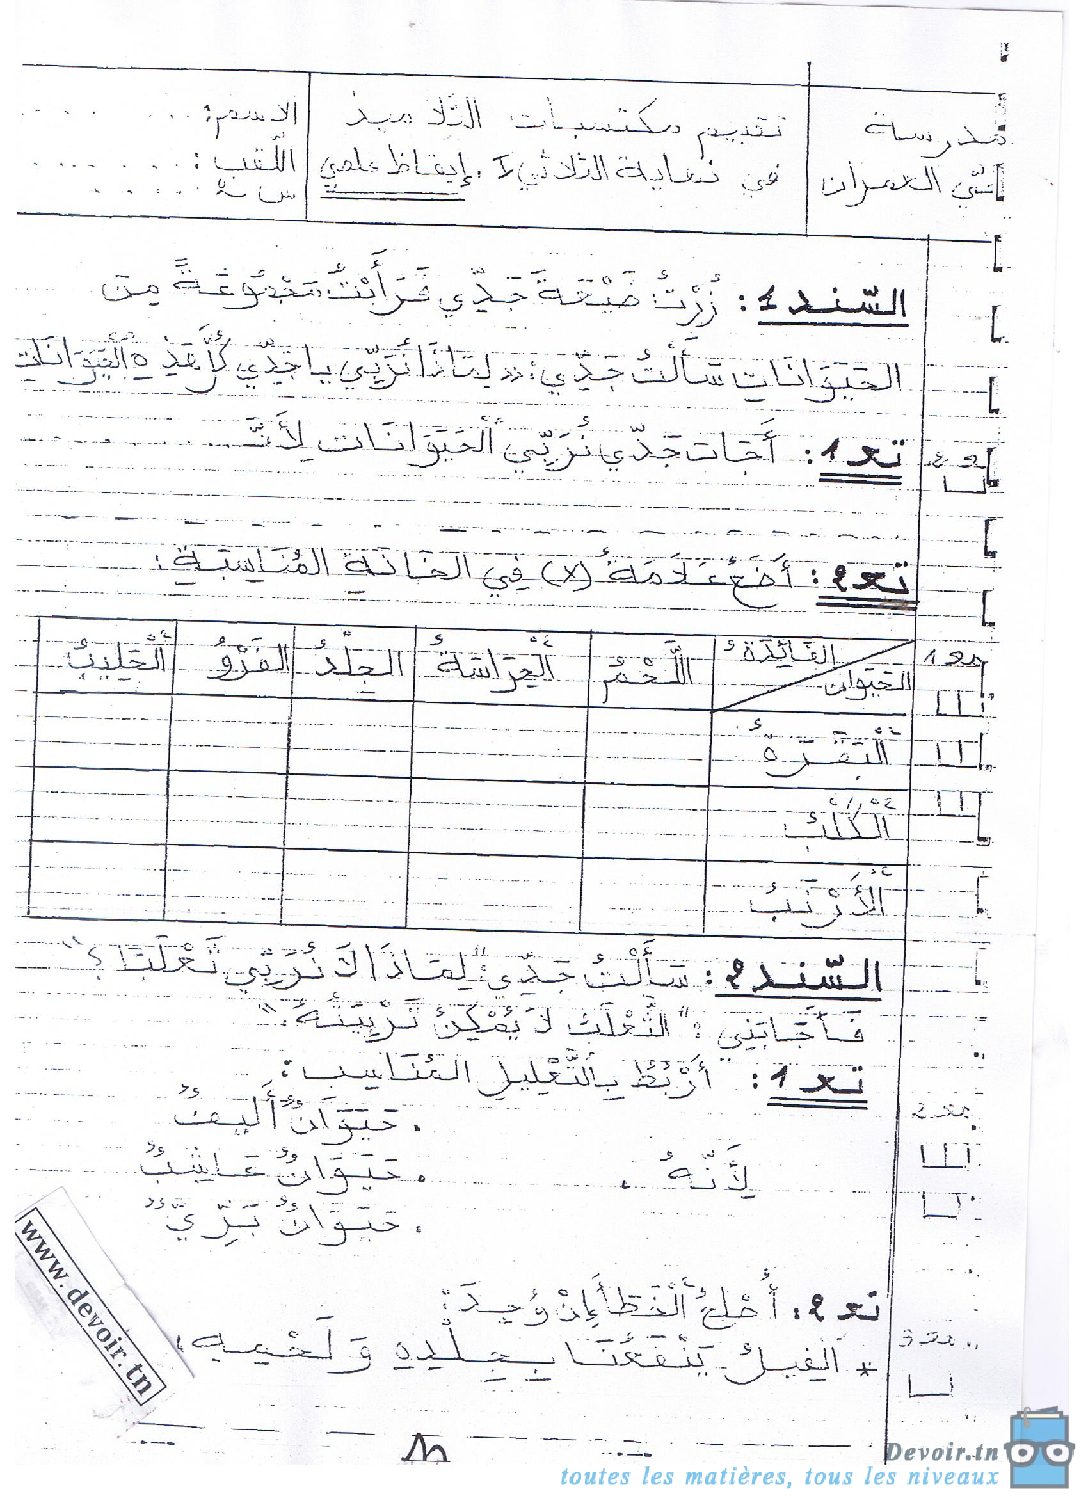 مدرسة
حي العمران
تقييم مكتسبات التلاميذ
في نهاية الثلاثي I. إيقاظ علمي
الاسم: ..........
اللقب: ..........
س 2: ..........
السّند 1: زُرْتُ ضَيْعَةَ جَدِّي فَرَأَيْتُ مَجْمُوعَةً مِن
الحَيَوَانَاتِ سَأَلْتُ جَدِّي: «لِمَاذَا نُرَبِّي يا جَدِّي كُلَّ هَذِهِ الْحَيَوَانَاتِ
تعـ 1: أَجَابَ جَدِّي نُرَبِّي الْحَيَوَانَاتِ لِأَنَّـ ..........
مع 2
تعـ 2: أَضَعُ عَلَامَةُ (x) فِي الخَانَةِ المُنَاسِبَةِ:
مع 1
الفَائِدَةُ
الحَيَوَان
اللَّحْمُ
الْحِرَاسَةُ
الجِلْدُ
الفَرْوُ
الْحَلِيبُ
الْبَقَرَةُ
الْكَلْبُ
الْأَرْنَبُ
السّند 2: سَأَلْتُ جَدِّي: "لِمَاذَا لَا نُرَبِّي ثَعْلَبًا؟"
فَأَجَابَنِي: "الثَّعْلَبُ لَا يُمْكِنُ تَرْبِيَتُهُ."
تعـ 1: أَرْبُطُ بِالتَّعْلِيلِ المُنَاسِب:
. حَيَوَانٌ أَلِيفٌ
مع 2
لِأَنَّهُ .
. حَيَوَانٌ عَاشِبٌ
. حَيَوَانٌ بَرِّيٌّ
تعـ 2: أُصْلِحُ الْخَطَأَ إِنْ وُجِدَ:
مع 3
* الفِيلُ يَنْفَعُنَا بِجِلْدِهِ وَلَحْمِهِ.
www.devoir.tn
Devoir.tn
toutes les matières, tous les niveaux